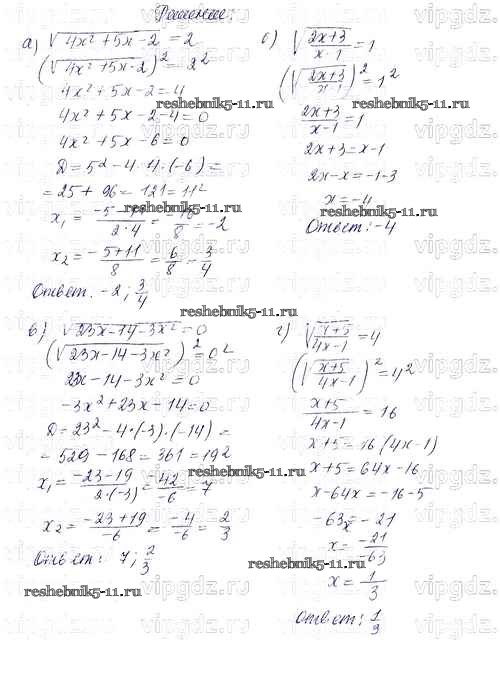 Решение:
а) √(4x² + 5x - 2) = 2
(√(4x² + 5x - 2))² = 2²
4x² + 5x - 2 = 4
4x² + 5x - 2 - 4 = 0
4x² + 5x - 6 = 0
D = 5² - 4 · 4 · (-6) =
= 25 + 96 = 121 = 11²
x₁ = (-5 - 11)/(2·4) = -16/8 = -2
x₂ = (-5 + 11)/8 = 6/8 = 3/4
Ответ. -2; 3/4
б) √((2x+3)/(x-1)) = 1
(√((2x+3)/(x-1)))² = 1²
(2x+3)/(x-1) = 1
2x + 3 = x - 1
2x - x = -1 - 3
x = -4
Ответ: -4
в) √(23x - 14 - 3x²) = 0
(√(23x - 14 - 3x²))² = 0²
23x - 14 - 3x² = 0
-3x² + 23x - 14 = 0
D = 23² - 4 · (-3) · (-14) =
= 529 - 168 = 361 = 19²
x₁ = (-23 - 19)/(2·(-3)) = -42/-6 = 7
x₂ = (-23 + 19)/-6 = -4/-6 = 2/3
Ответ: 7; 2/3
г) √((x+5)/(4x-1)) = 4
(√((x+5)/(4x-1)))² = 4²
(x+5)/(4x-1) = 16
x + 5 = 16(4x - 1)
x + 5 = 64x - 16
x - 64x = -16 - 5
-63x = -21
x = -21/-63
x = 1/3
Ответ: 1/3
reshebnik5-11.ru
vipgdz.ru